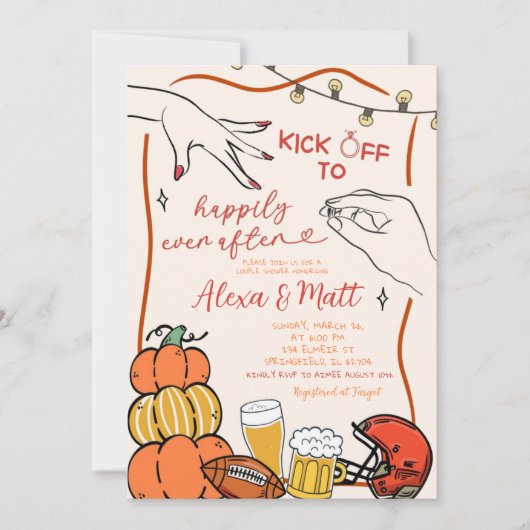 KICK OFF
TO
happily
ever after
PLEASE JOIN US FOR A
COUPLE SHOWER HONORING
Alexa & Matt
SUNDAY, MARCH 26,
AT 6:00 PM
234 ELMEIR ST
SPRINGFIELD, IL 62704
KINDLY RSVP TO AIMEE AUGUST 10TH
Registered at Target